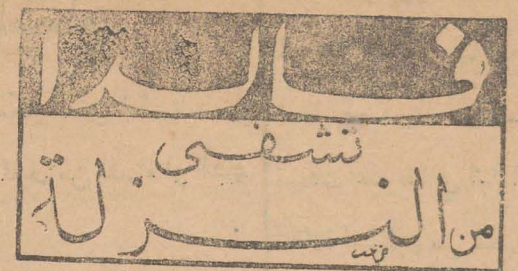 فالدا
تشفى
من النزلة